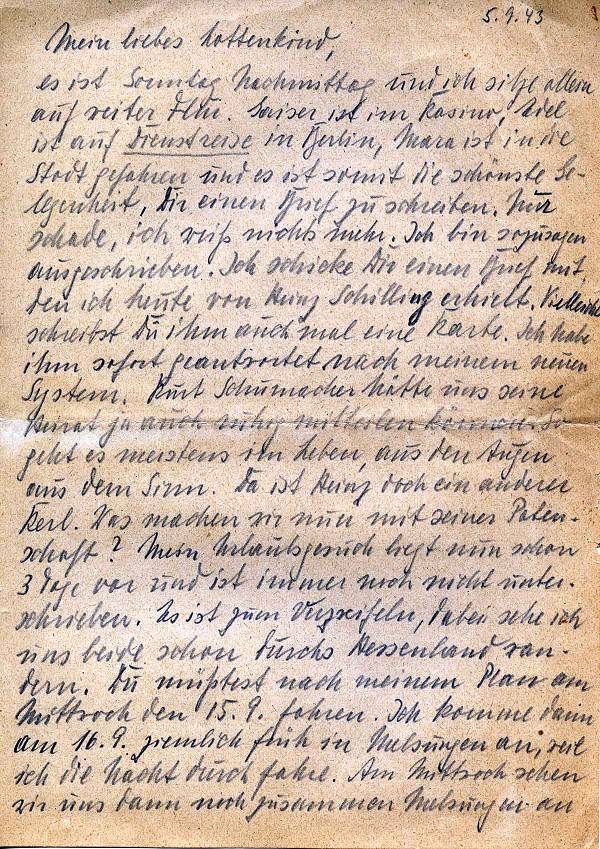 5.9.43
Mein liebes Lottenkind,
es ist Sonntag Nachmittag und ich sitze allein
auf weiter Flur. Kaiser ist im Kasino, Edel
ist auf Dienstreise in Berlin, Mara ist in die
Stadt gefahren und es ist somit die schönste Ge-
legenheit, Dir einen Brief zu schreiben. Nur
schade, ich weiß nichts mehr. Ich bin sozusagen
ausgeschrieben. Ich schicke Dir einen Brief mit,
den ich heute von Heinz Schilling erhielt. Vielleicht
schreibst Du ihm auch mal eine Karte. Ich habe
ihm sofort geantwortet nach meinem neuen
System. Kurt Schumacher hätte uns seine
Heirat ja auch ruhig mitteilen können. So
geht es meistens im Leben, aus den Augen
aus dem Sinn. Da ist Heinz doch ein anderer
Kerl. Was machen wir nun mit seiner Paten-
schaft? Mein Urlaubsgesuch liegt nun schon
3 Tage vor und ist immer noch nicht unter-
schrieben. Es ist zum Verzweifeln, dabei sehe ich
uns beide schon durchs Hessenland wan-
dern. Du müßtest nach meinem Plan am
Mittwoch den 15.9. fahren. Ich komme dann
am 16.9. ziemlich früh in Melsungen an, weil
ich die Nacht durch fahre. Am Mittwoch sehen
wir uns dann noch zusammen Melsungen an